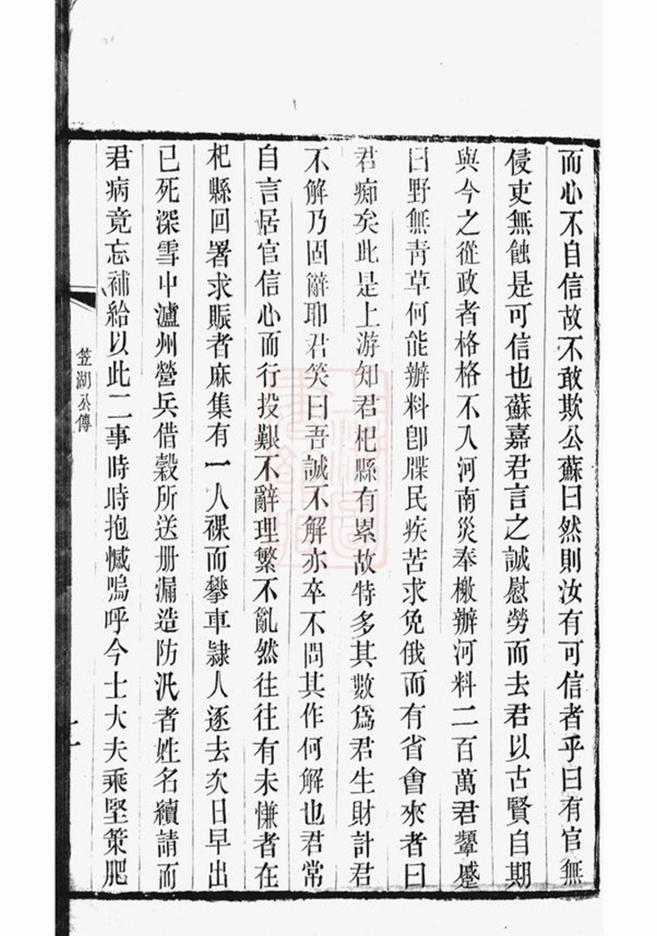 而心不自信故不敢欺公蘇曰然則汝有可信者乎曰有官無
侵吏無蝕是可信也蘇嘉君言之誠慰勞而去君以古賢自期
與今之從政者格格不入河南災奉檄辦河料二百萬君顰蹙
曰野無靑草何能辦料卽牒民疾苦求免俄而有省會來者曰
君痴矣此是上游知君杞縣有累故特多其數爲君生財計君
不解乃固辭耶君笑曰吾誠不解亦卒不問其作何解也君常
自言居官信心而行投艱不辭理繁不亂然往往有未慊者在
杞縣回署求賑者麻集有一人裸而攀車隷人逐去次日早出
已死深雪中瀘州營兵借穀所送册漏造防汛者姓名續請而
君病竟忘補給以此二事時時抱憾嗚呼今士大夫乘堅策肥
笠湖公傳